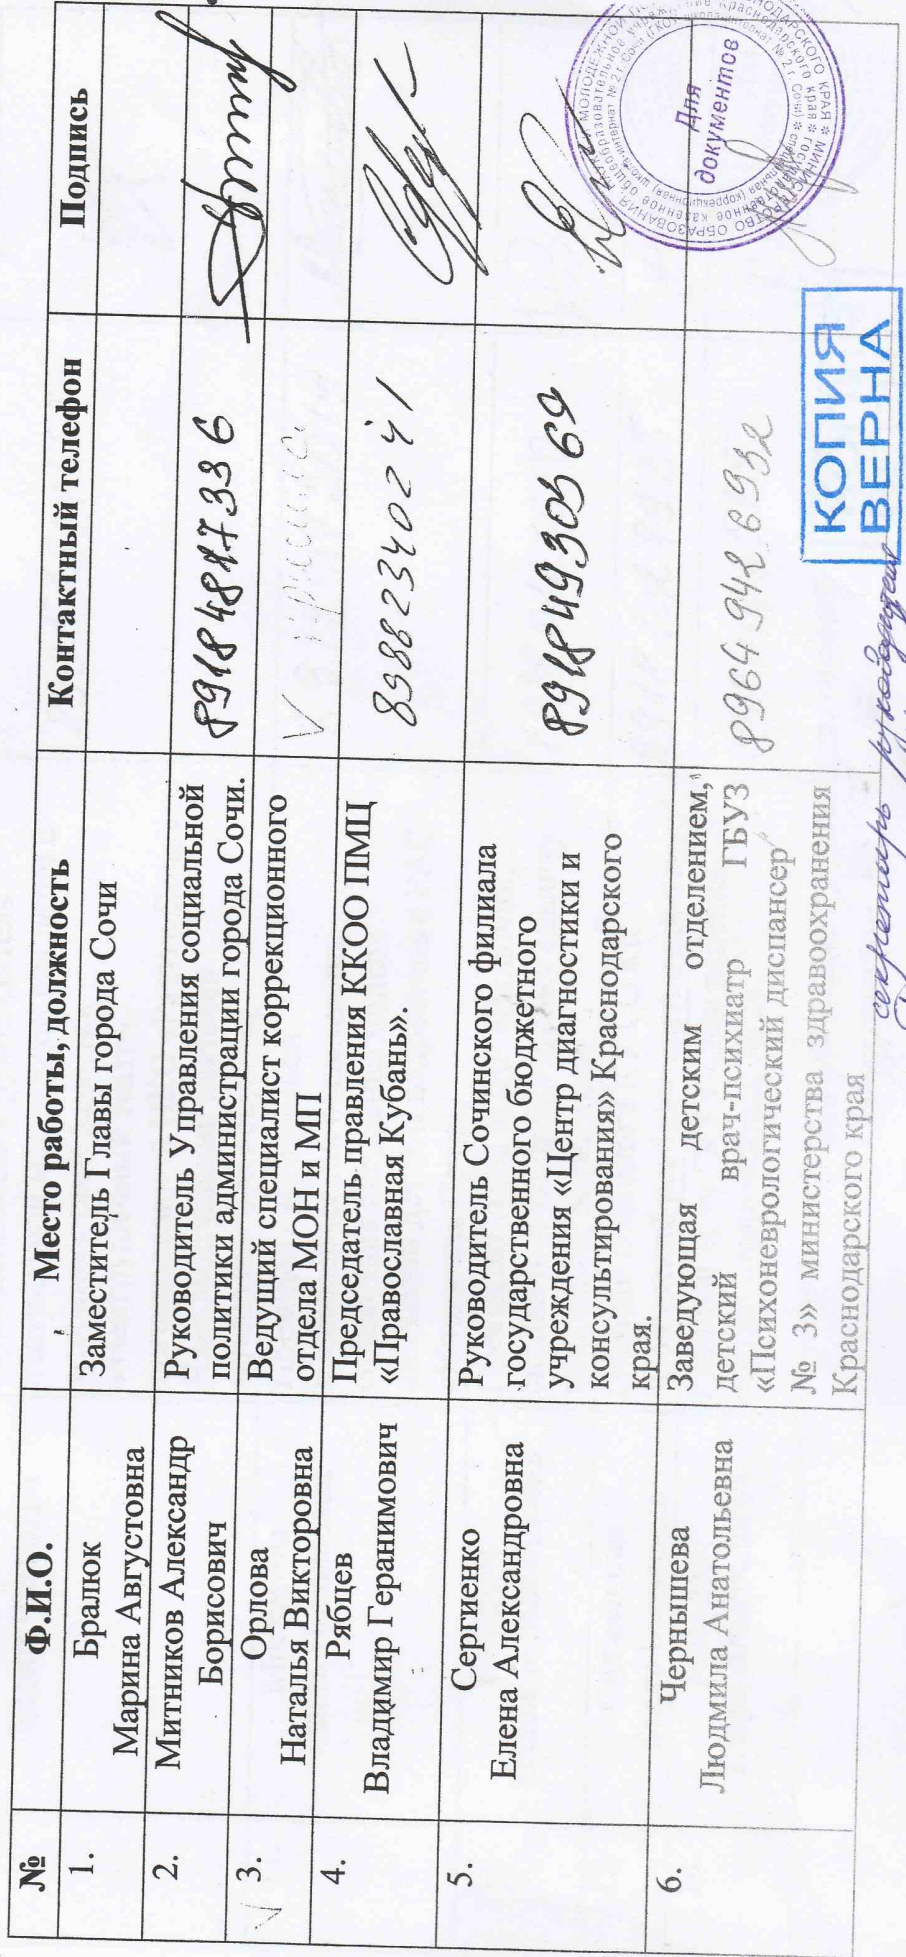 № Ф.И.О. Место работы, должность Контактный телефон Подпись
1. Бралюк
Марина Августовна
Заместитель Главы города Сочи
2. Митников Александр
Борисович
Руководитель Управления социальной
политики администрации города Сочи.
3. Орлова
Наталья Викторовна
Ведущий специалист коррекционного
отдела МОН и МП
V
4. Рябцев
Владимир Геранимович
Председатель правления ККОО ПМЦ
«Православная Кубань».
5. Сергиенко
Елена Александровна
Руководитель Сочинского филиала
государственного бюджетного
учреждения «Центр диагностики и
консультирования» Краснодарского
края.
89184930569
6. Чернышева
Людмила Анатольевна
Заведующая детским отделением,
детский врач-психиатр ГБУЗ
«Психоневрологический диспансер
№ 3» министерства здравоохранения
Краснодарского края
89649426932
Для
документов
КОПИЯ
ВЕРНА
секретарь руководителя